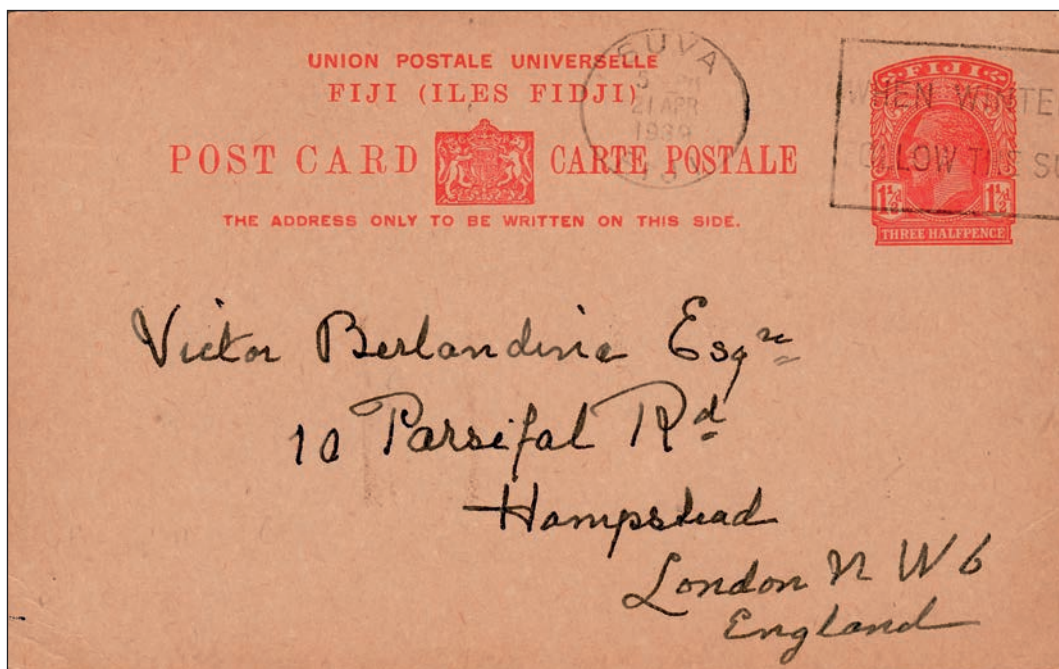 UNION POSTALE UNIVERSELLE
FIJI (ILES FIDJI)
POST CARD CARTE POSTALE
THE ADDRESS ONLY TO BE WRITTEN ON THIS SIDE.
SUVA
21 APR
1939
FIJI
WHEN WRITE
LOW THE
FIJI
1½d 1½d
THREE HALFPENCE
Victor Berlandina Esqre
10 Parsifal Rd
Hampstead
London N W 6
England